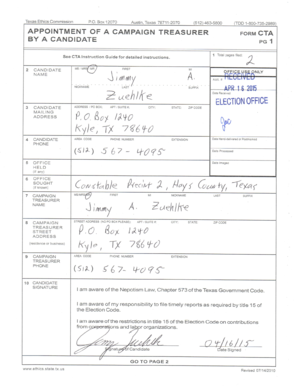 Texas Ethics Commission P.O. Box 12070 Austin, Texas 78711-2070 (512) 463-5800 (TDD 1-800-735-2989)
APPOINTMENT OF A CAMPAIGN TREASURER BY A CANDIDATE
FORM CTA
PG 1
See CTA Instruction Guide for detailed instructions.
1 Total pages filed:
2
2 CANDIDATE NAME
MS / MRS / MR FIRST MI
Jimmy A.
NICKNAME LAST SUFFIX
Zuehlke
OFFICE USE ONLY
RECEIVED
APR 16 2015
ELECTION OFFICE
3 CANDIDATE MAILING ADDRESS
ADDRESS / PO BOX; APT / SUITE #; CITY; STATE; ZIP CODE
P.O. Box 1240
Kyle, TX 78640
4 CANDIDATE PHONE
AREA CODE PHONE NUMBER EXTENSION
(512) 567-4095
5 OFFICE HELD
(if any)
6 OFFICE SOUGHT
(if known)
Constable Precinct 2, Hays County, Texas
7 CAMPAIGN TREASURER NAME
Jimmy A. Zuehlke
8 CAMPAIGN TREASURER STREET ADDRESS
(residence or business)
P.O. Box 1240
Kyle, TX 78640
9 CAMPAIGN TREASURER PHONE
AREA CODE PHONE NUMBER EXTENSION
(512) 567-4095
10 CANDIDATE SIGNATURE
I am aware of the Nepotism Law, Chapter 573 of the Texas Government Code.
I am aware of my responsibility to file timely reports as required by title 15 of the Election Code.
I am aware of the restrictions in title 15 of the Election Code on contributions from corporations and labor organizations.
04/16/15
Signature of Candidate Date Signed
GO TO PAGE 2
www.ethics.state.tx.us